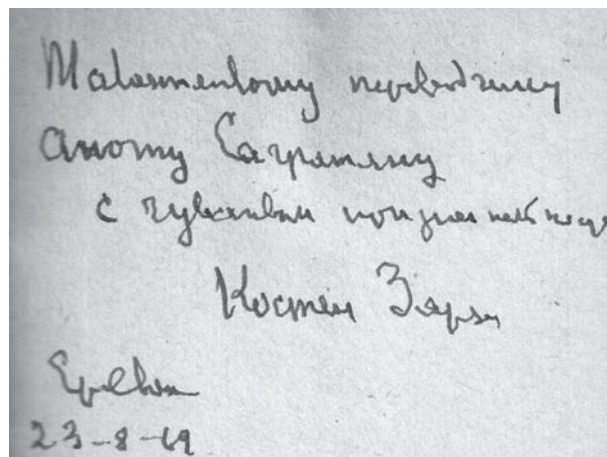 Талантливому переводчику
Ашоту Сагратяну
с чувством признательности
Костан Зарян
Ереван
23-8-69